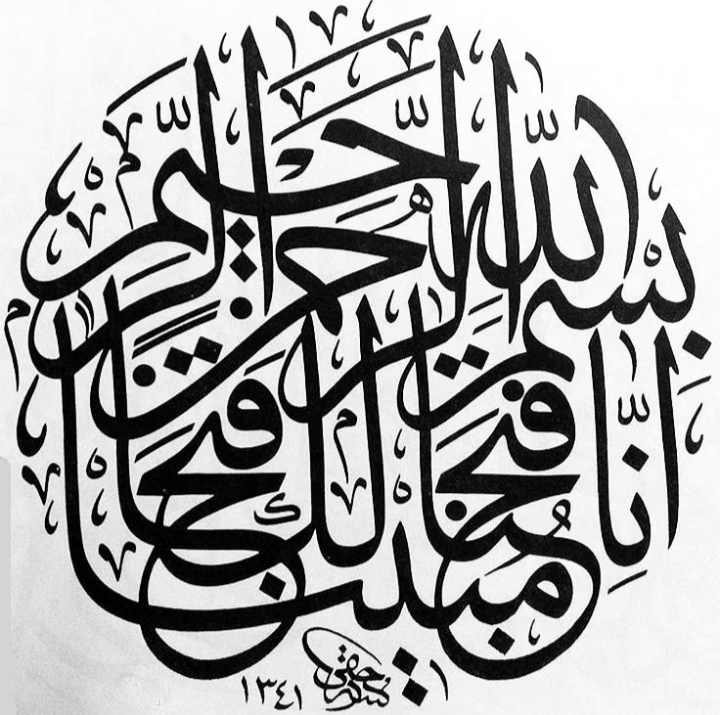 بِسْمِ اللّٰهِ الرَّحْمٰنِ الرَّحِيمِ
اِنَّا فَتَحْنَا لَكَ فَتْحًا مُبِينًا
كتبه حقي
١٣٤١